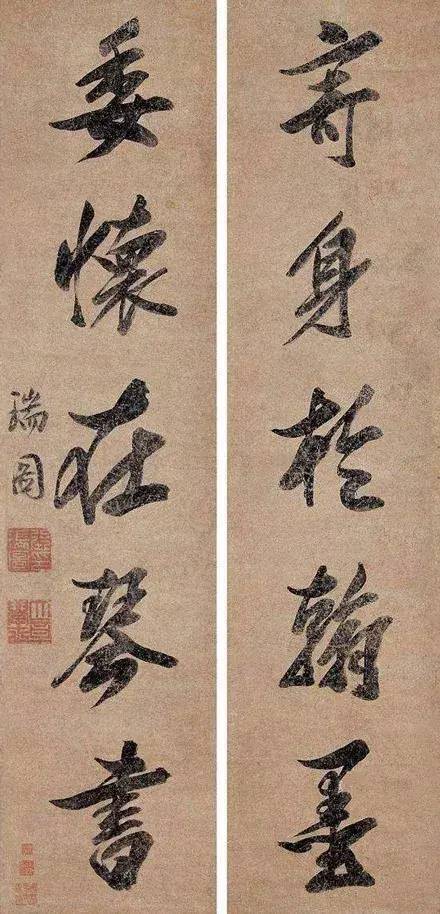 寄身於翰墨
委懷在琴書
瑞图